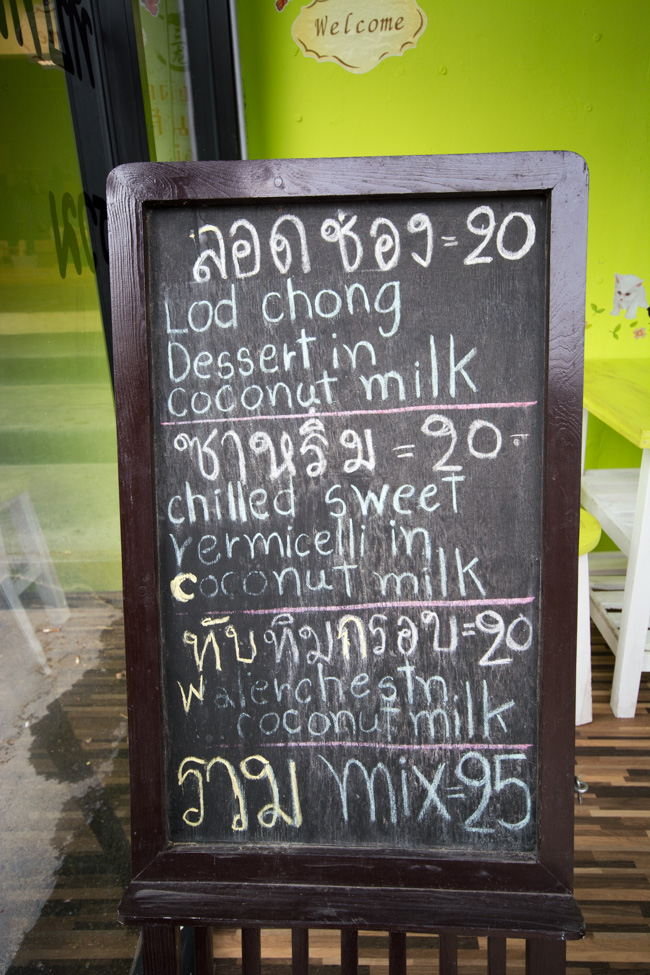 Welcome
ลอดช่อง=20
Lod chong
Dessert in
coconut milk
ซาหริ่ม=20.-
chilled sweet
vermicelli in
coconut milk
ทับทิมกรอบ=20
Walerchestn
coconut milk
รวม mix=25